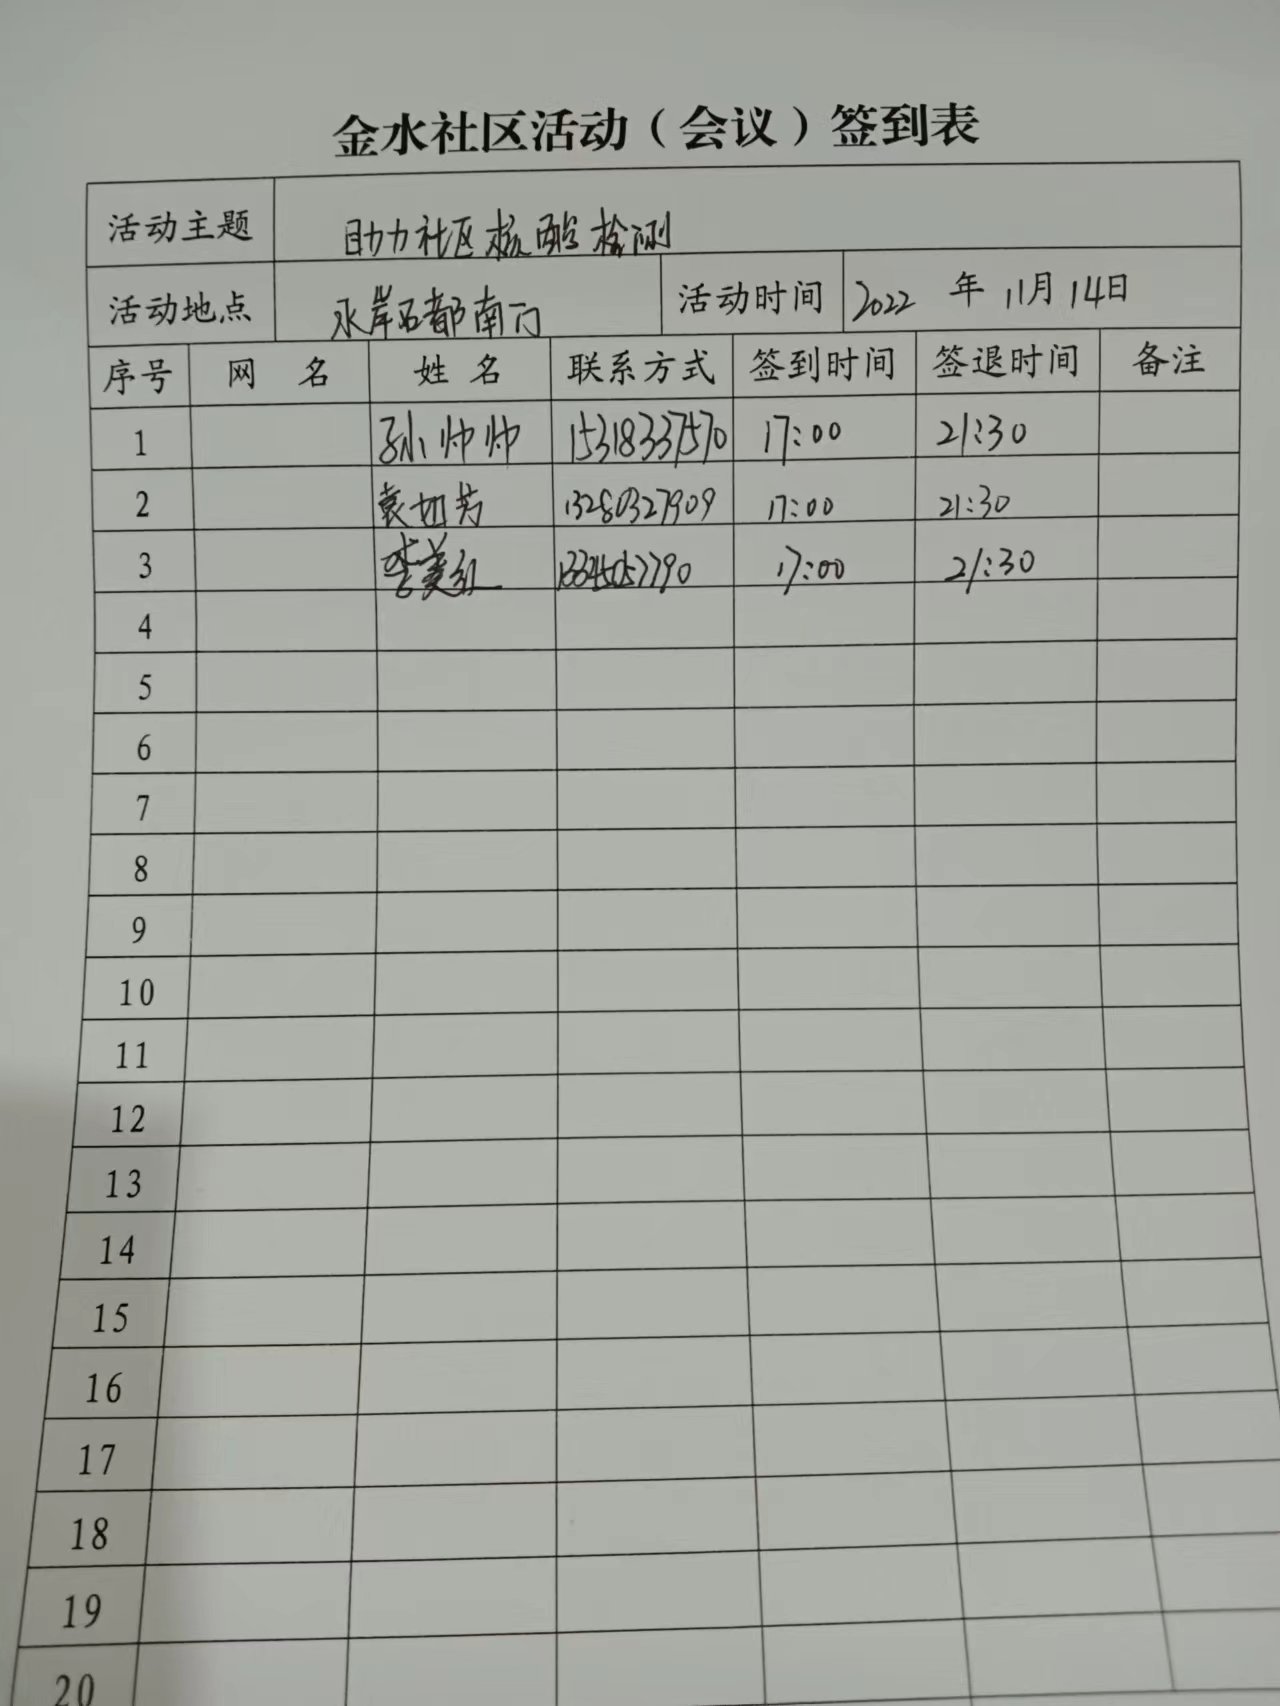 金水社区活动（会议）签到表
活动主题 助力社区核酸检测
活动地点 水岸名都南门 活动时间 2022 年 11月 14日
序号 网 名 姓 名 联系方式 签到时间 签退时间 备注
1 孙帅帅 15318337570 17:00 21:30
2 13280327909 17:00 21:30
3 李美红 17:00 21:30
4
5
6
7
8
9
10
11
12
13
14
15
16
17
18
19
20